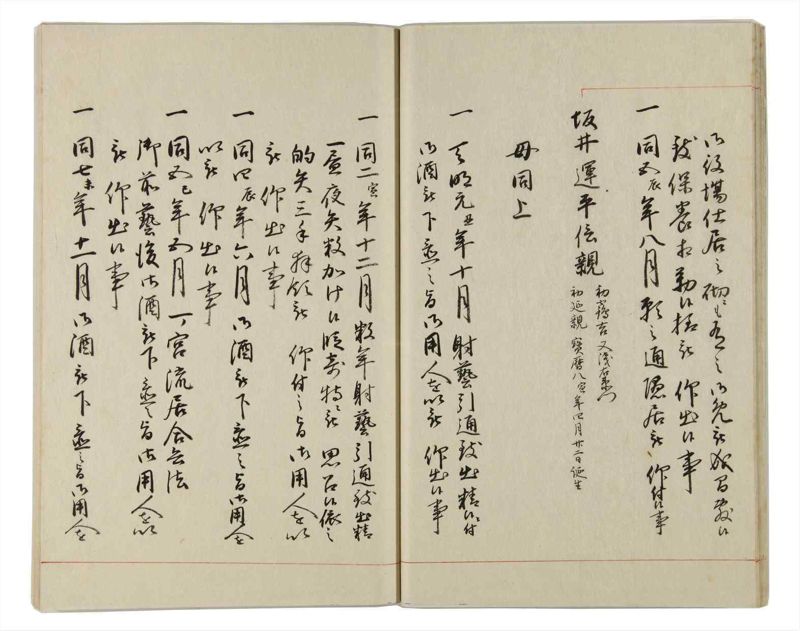 御役場仕居之砌も有之御免被成置候
致保養相勤候様被 仰出候事
一 同五辰年八月願之通隠居被 仰付候事
坂井運平信親 初 又浅右衛門
初延親 寳暦八寅年四月廿二日誕生
母同上
一 天明元丑年十月射藝引通致出精候付
御酒被下置之旨御用人を以被 仰出候事
一 同二寅年十二月数年射藝引通致出精
昼夜矢数加け候段奇特ニ被 思召候依之
的矢三手拝領被 仰付之旨御用人を以
被 仰出候事
一 同四辰年六月御酒被下置之旨御用人を
以被 仰出候事
一 同五巳年五月一宮流居合兵法
御前藝後御酒被下置之旨御用人を以
被 仰出候事
一 同七未年十一月御酒被下置之旨御用人を